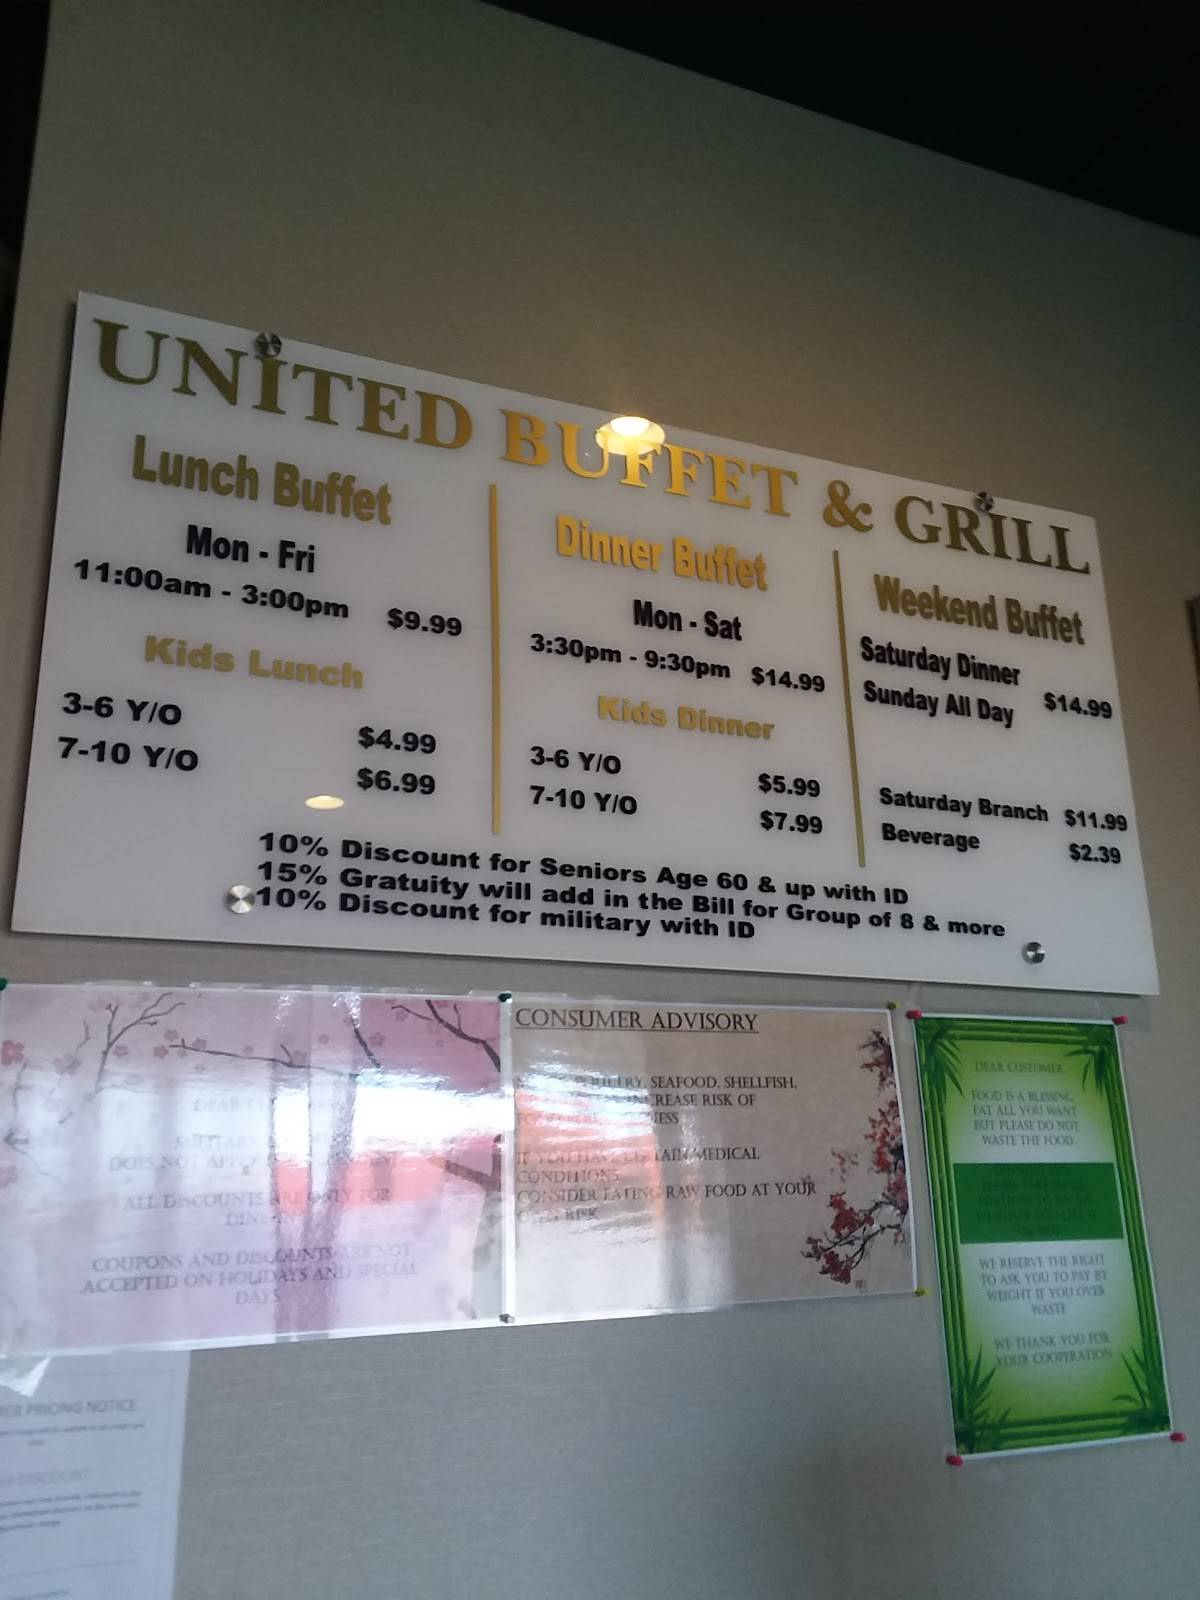 UNITED BUFFET & GRILL
Lunch Buffet
Mon - Fri
11:00am - 3:00pm $9.99
Kids Lunch
3-6 Y/O $4.99
7-10 Y/O $6.99
Dinner Buffet
Mon - Sat
3:30pm - 9:30pm $14.99
Kids Dinner
3-6 Y/O $5.99
7-10 Y/O $7.99
Weekend Buffet
Saturday Dinner
Sunday All Day $14.99
Saturday Branch $11.99
Beverage $2.39
10% Discount for Seniors Age 60 & up with ID
15% Gratuity will add in the Bill for Group of 8 & more
10% Discount for military with ID
DEAR
MILITARY
DOES NOT APPLY
ALL DISCOUNTS ARE ONLY FOR
DINE
COUPONS AND DISCOUNTS ARE NOT
ACCEPTED ON HOLIDAYS AND SPECIAL
DAYS
CONSUMER ADVISORY
POULTRY, SEAFOOD, SHELLFISH,
INCREASE RISK OF
IF YOU HAVE CERTAIN MEDICAL
CONDITIONS
CONSIDER EATING RAW FOOD AT YOUR
RISK
DEAR CUSTOMER,
FOOD IS A BLESSING
EAT ALL YOU WANT
BUT PLEASE DO NOT
WASTE THE FOOD.
WE RESERVE THE RIGHT
TO ASK YOU TO PAY BY
WEIGHT IF YOU OVER
WASTE
WE THANK YOU FOR
YOUR COOPERATION
PRICING NOTICE
DISCOUNT